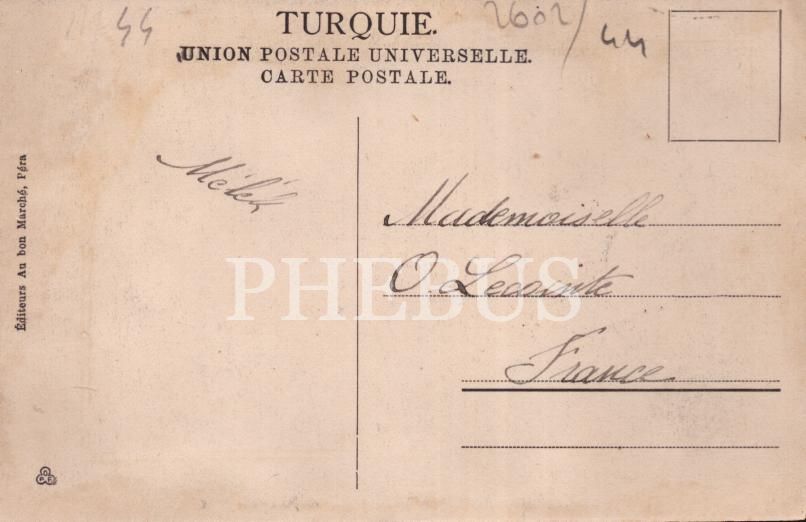 44
2602/44
TURQUIE.
UNION POSTALE UNIVERSELLE.
CARTE POSTALE.
Éditeurs Au bon Marché, Péra
Mademoiselle
O. Lecointe
France
PHEBUS